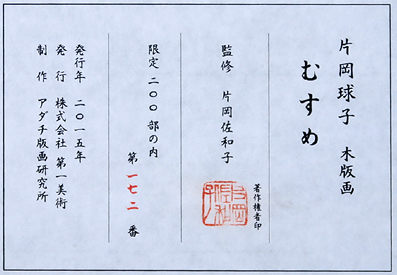 片岡球子 木版画
むすめ
監修 片岡佐和子
著作権者印
限定 二〇〇部の内
第 一七二 番
発行年 二〇一五年
発行 株式会社 第一美術
制作 アダチ版画研究所